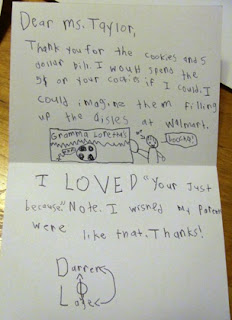 Dear Ms. Taylor,
Thank you for the cookies and 5
dollar bill. I would spend the
5$ on your cookies if I could. I
could imagine them filling
up the aisles at Walmart.
Gramma Loretta's
I LOVED "Your Just
because" Note. I wished my Parents
were like that. Thanks!
Darren